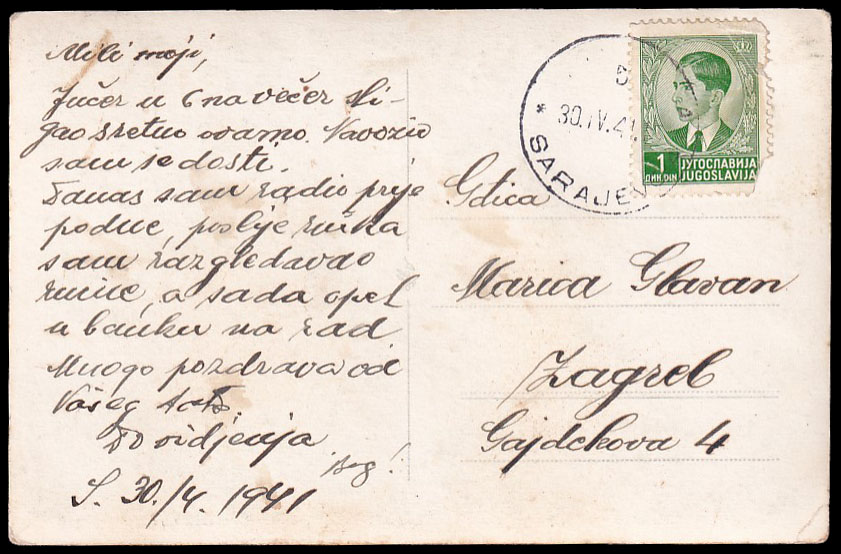 Mili moji,
Jučer u 6 na večer sti-
gao sretno ovamo. Navozio
sam se dosti.
Danas sam radio prije
podne, poslije ručka
sam razgledavao
ruine, a sada opet
u banku na rad
Mnogo pozdrava od
Vašeg
Do vidjenja
Bog!
S. 30./4. 1941
30.IV.41.
* SARAJE
1
ДИН.DIN
ЈУГОСЛАВИЈА
JUGOSLAVIJA
Gđica
Marica Glavan
Zagreb
Gajdekova 4